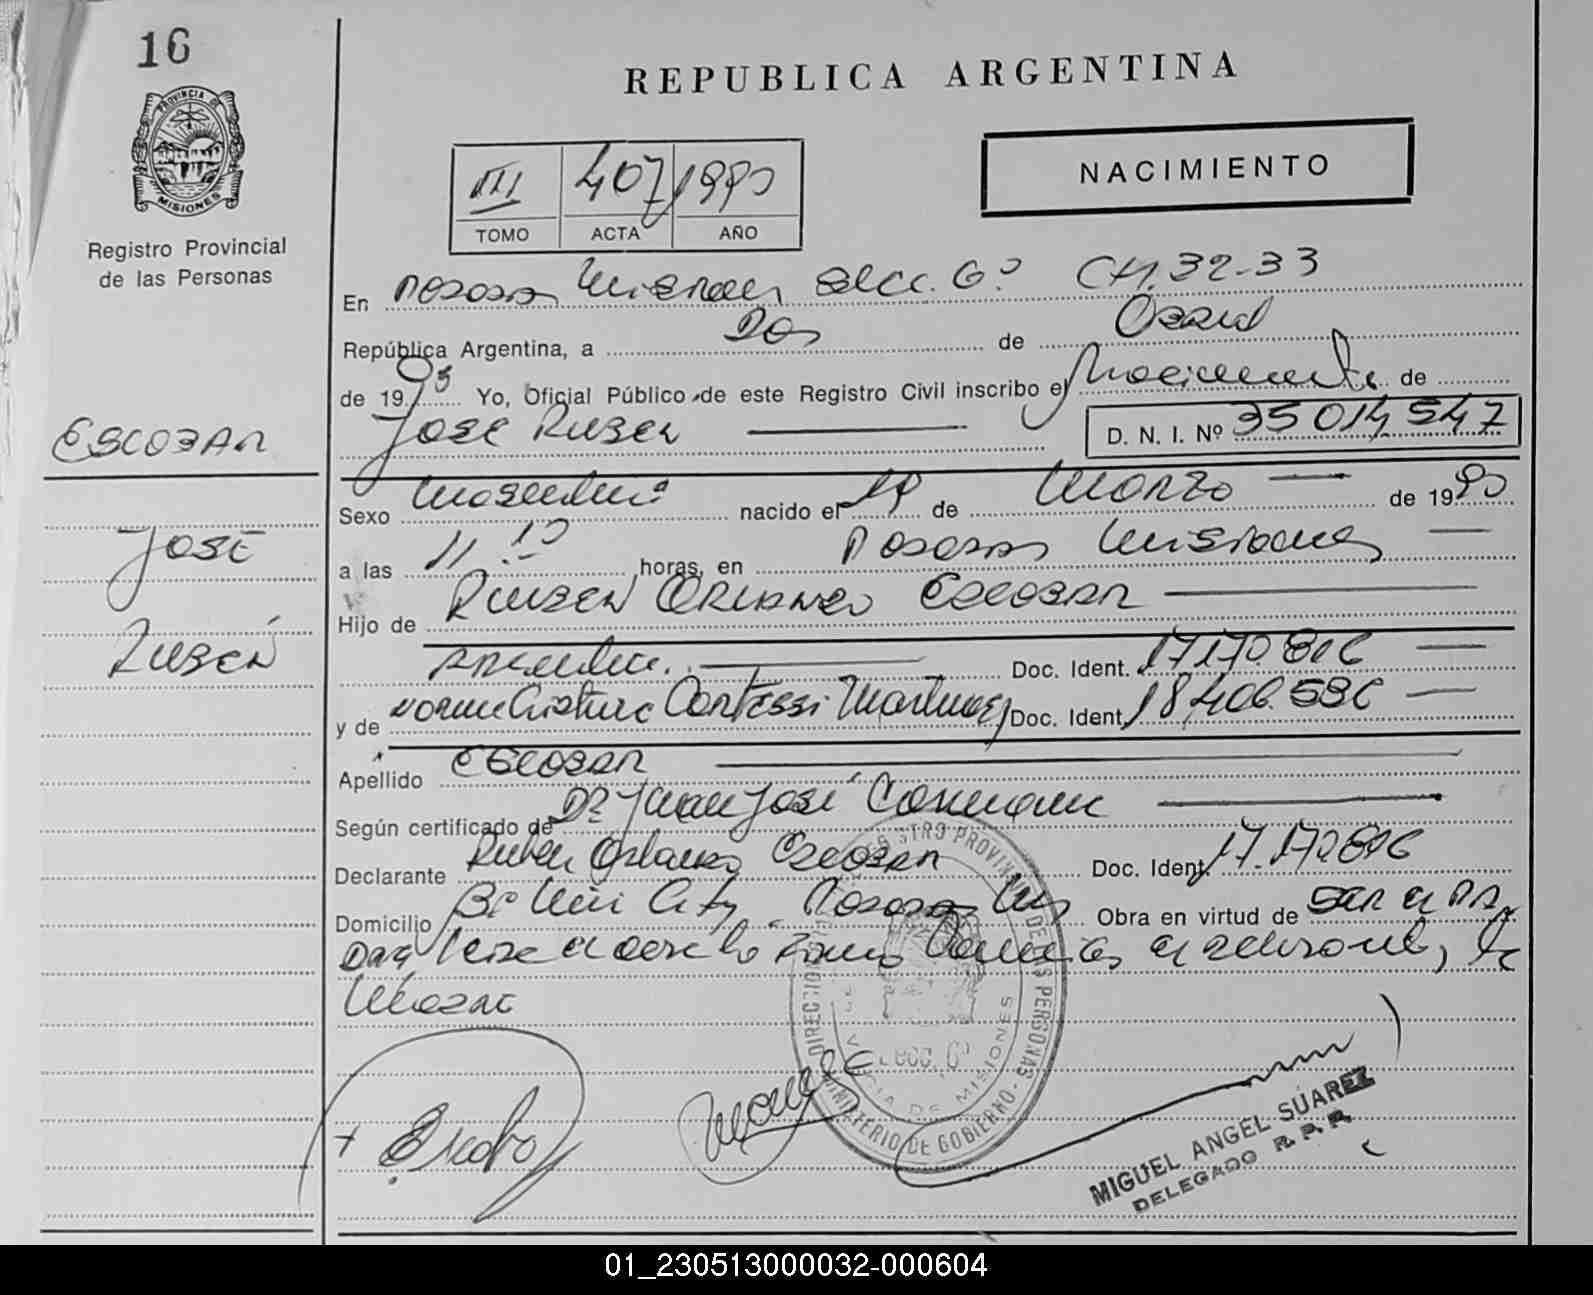 16
REPUBLICA ARGENTINA
PROVINCIA DE
MISIONES
Registro Provincial
de las Personas
III 407 1990
TOMO ACTA AÑO
NACIMIENTO
En Posadas Misiones Secc. 6º CH. 32-33
República Argentina, a Dos de Abril
de 19 Yo, Oficial Público de este Registro Civil inscribo el Nacimiento de
ESCOBAR
JOSE RUBEN D. N. I. Nº 35 014 547
Sexo Masculino nacido el de Marzo de 1990
JOSÉ
a las 11.10 horas, en Posadas Misiones
RUBÉN
Hijo de RUBEN ORLANDO ESCOBAR
Argentino. Doc. Ident. 17.170.806
y de Norma Cristina Martinez Doc. Ident. 18.406.596
Apellido ESCOBAR
Según certificado de Dr. Juan José
Declarante Ruben Orlando Escobar Doc. Ident. 17.170.806
Domicilio Bº Mini City. Posadas Ms Obra en virtud de ser el
DIRECCION REGISTRO PROVINCIAL DE LAS PERSONAS
SECC. 6º
PROVINCIA DE MISIONES
MINISTERIO DE GOBIERNO
MIGUEL ANGEL SUAREZ
DELEGADO R.P.P.
01_230513000032-000604